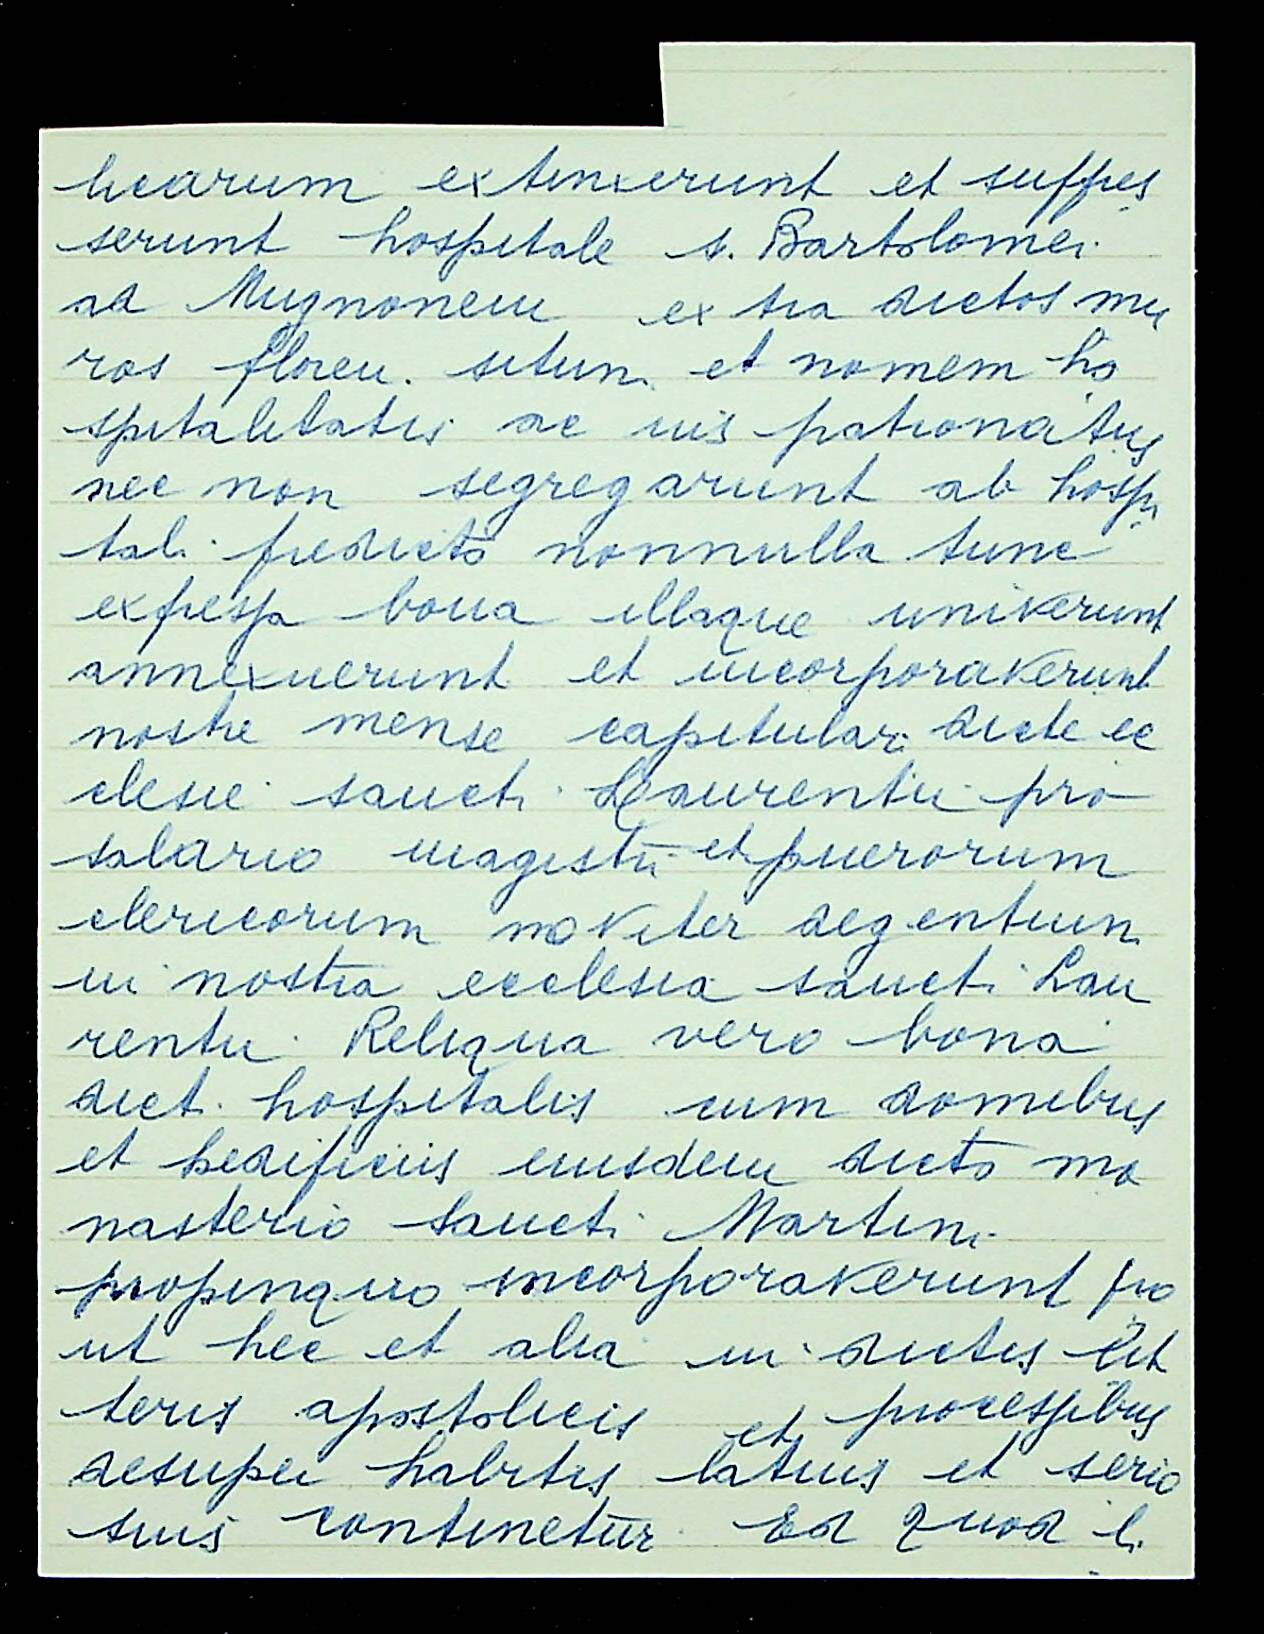 licarum extinxerunt et suppres
serunt hospitale s. Bartolomei
ad Mugnonem extra dictos mu
ros floren. situm et nomem ho
spitalitatis ac iuis patronatus
nec non segregarunt ab hospi
tali predicto nonnulla tunc
expressa bona illaque univerunt
annexuerunt et incorporaverunt
nostre mense capitulari dicte ec
clesie sancti Laurentii pro
salario magistri et puerorum
clericorum noviter degentium
in nostra ecclesia sancti Lau
rentii. Reliqua vero bona
dicti hospitalis cum domibus
et hedificiis eiusdem dicto mo
nasterio sancti Martini
propinquo incorporaverunt pro
ut hec et alia in dictis lit
teris apostolicis et processibus
desuper habitis latius et serio
sius continetur. Ed quod li